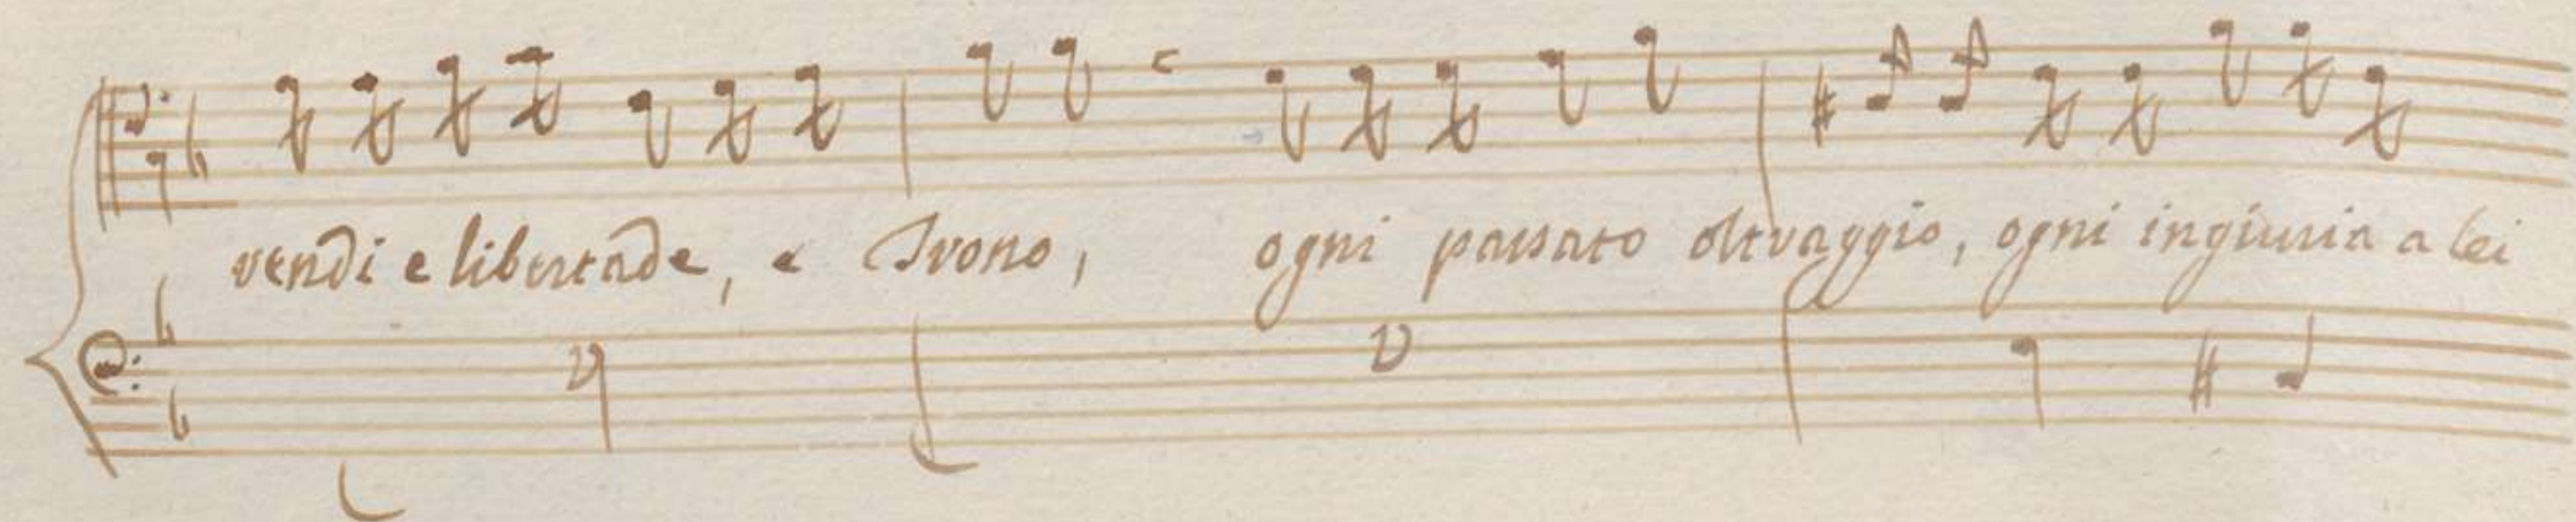 rendi e libertade, e Trono, ogni passato oltraggio, ogni ingiuria a lei